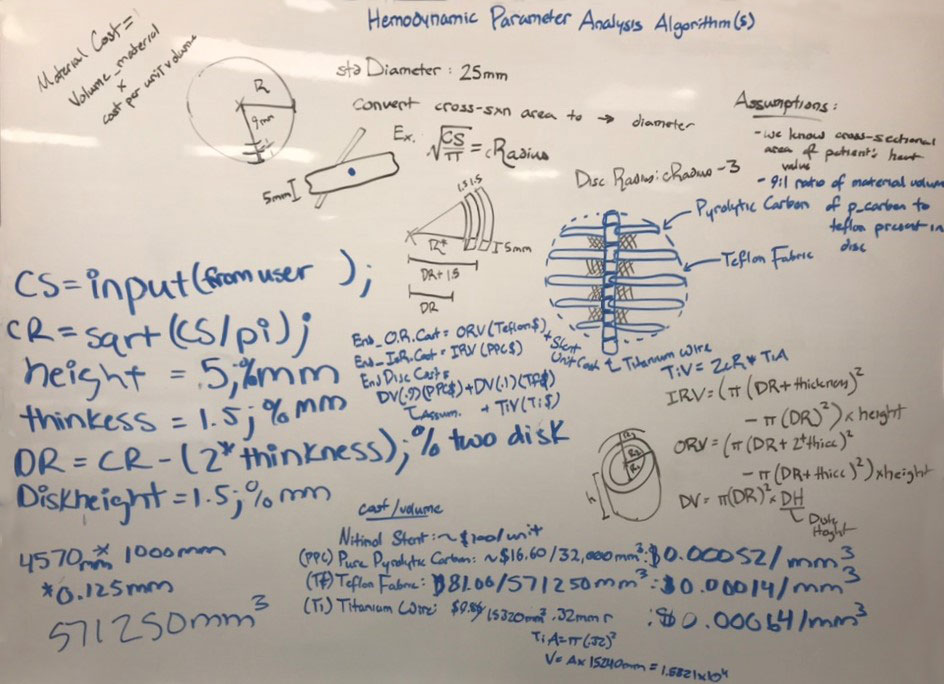 Hemodynamic Parameter Analysis Algorithm(s)
Material Cost =
Volume_material
x
cost per unit volume
R
9mm
std Diameter : 25mm
convert cross-sxn area to → diameter
Ex. √CS/π = cRadius
5mm
Disc Radius: cRadius - 3
Assumptions:
- we know cross-sectional
area of patient's heart
valve
- 9:1 ratio of material volume
of p_carbon to
teflon present in
disc
Pyrolytic Carbon
Teflon Fabric
1.5 1.5
R*
5mm
DR + 1.5
DR
CS = input(from user );
CR = sqrt(CS/pi);
height = 5;%mm
thinkess = 1.5;%mm
DR = CR - (2*thinkness);% two disk
Diskheight = 1.5;%mm
End_O.R.Cost = ORV(Teflon$)
End_I.R.Cost = IRV(PPC$)
End Disc Cost =
DV(.9)(PPC$)+DV(.1)(TF$)
Assum. + TiV(Ti$)
+ Stent
Unit Cost
Titanium wire
TiV = 2cR * TiA
IRV = (π(DR+thickness)²
- π(DR)²) x height
ORV = (π(DR+2*thicc)²
- π(DR+thicc)²) x height
DV = π(DR)² x DH
Disk
Height
R₂
R₁
h
cost/volume
Nitinol Stent: ~$100/unit
(PPC) Pure Pyrolytic Carbon: ~$16.60/32,000mm³: $0.00052/mm³
(Tf) Teflon Fabric: $81.06/571250mm³: $0.00014/mm³
(Ti) Titanium Wire: 15320mm² .32mm r : $0.00064/mm³
TiA = π(.32)²
V = A x 15240mm = 1.5821x10⁴
4570mm * 1000mm
*0.125mm
571250mm³